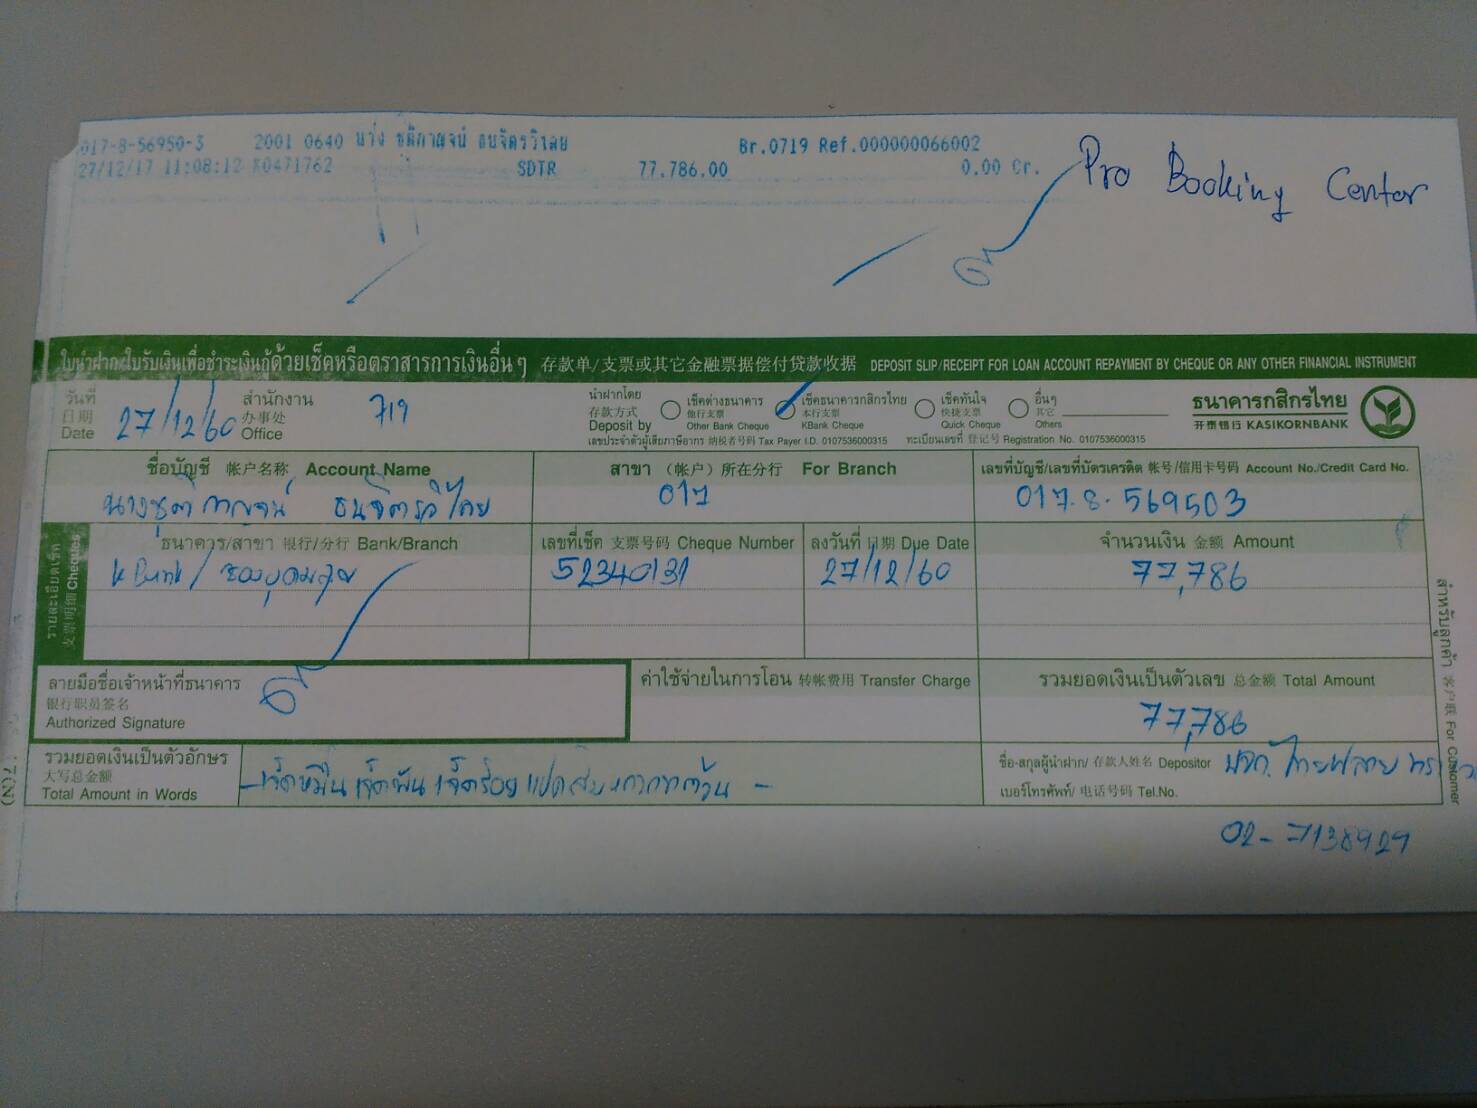 017-8-56950-3 2001 0640 นาง ชุติกาญจน์ ธนจิตรวิไลย Br.0719 Ref.000000066002
27/12/17 11:08:12 K0471762 SDTR 77,786.00 0.00 Cr.
Pro Booking Center
ใบนำฝาก/ใบรับเงินเพื่อชำระเงินกู้ด้วยเช็คหรือตราสารการเงินอื่น ๆ 存款单/支票或其它金融票据偿付贷款收据 DEPOSIT SLIP/RECEIPT FOR LOAN ACCOUNT REPAYMENT BY CHEQUE OR ANY OTHER FINANCIAL INSTRUMENT
วันที่ 日期 Date 27/12/60 สำนักงาน 办事处 Office 719
นำฝากโดย 存款方式 Deposit by
เช็คต่างธนาคาร 他行支票 Other Bank Cheque
เช็คธนาคารกสิกรไทย 本行支票 KBank Cheque
เช็คทันใจ 快捷支票 Quick Cheque
อื่นๆ 其它 Others
ธนาคารกสิกรไทย
开泰银行 KASIKORNBANK
เลขประจำตัวผู้เสียภาษีอากร 纳税者号码 Tax Payer I.D. 0107536000315 ทะเบียนเลขที่ 登记号 Registration No. 0107536000315
ชื่อบัญชี 帐户名称 Account Name สาขา (帐户) 所在分行 For Branch เลขที่บัญชี/เลขที่บัตรเครดิต 帐号/信用卡号码 Account No./Credit Card No.
นางชุติกาญจน์ ธนจิตรวิไลย 017 017-8-569503
รายละเอียดเช็ค 支票明细 Cheques
ธนาคาร/สาขา 银行/分行 Bank/Branch เลขที่เช็ค 支票号码 Cheque Number ลงวันที่ 日期 Due Date จำนวนเงิน 金额 Amount
52340131 27/12/60 77,786
ลายมือชื่อเจ้าหน้าที่ธนาคาร 银行职员签名 Authorized Signature
ค่าใช้จ่ายในการโอน 转帐费用 Transfer Charge
รวมยอดเงินเป็นตัวเลข 总金额 Total Amount
77,786
รวมยอดเงินเป็นตัวอักษร 大写总金额 Total Amount in Words
-เจ็ดหมื่นเจ็ดพันเจ็ดร้อยแปดสิบหกบาทถ้วน-
ชื่อ-สกุลผู้นำฝาก/ 存款人姓名 Depositor
เบอร์โทรศัพท์/ 电话号码 Tel.No.
02-7138929
สำหรับลูกค้า 客户联 For Customer